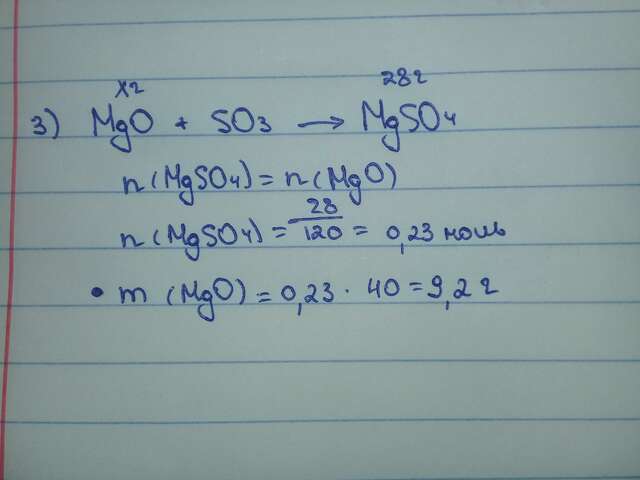 хг 28г
3) MgO + SO3 → MgSO4
n (MgSO4) = n (MgO)
n (MgSO4) = 28/120 = 0,23 моль
• m (MgO) = 0,23 · 40 = 9,2 г